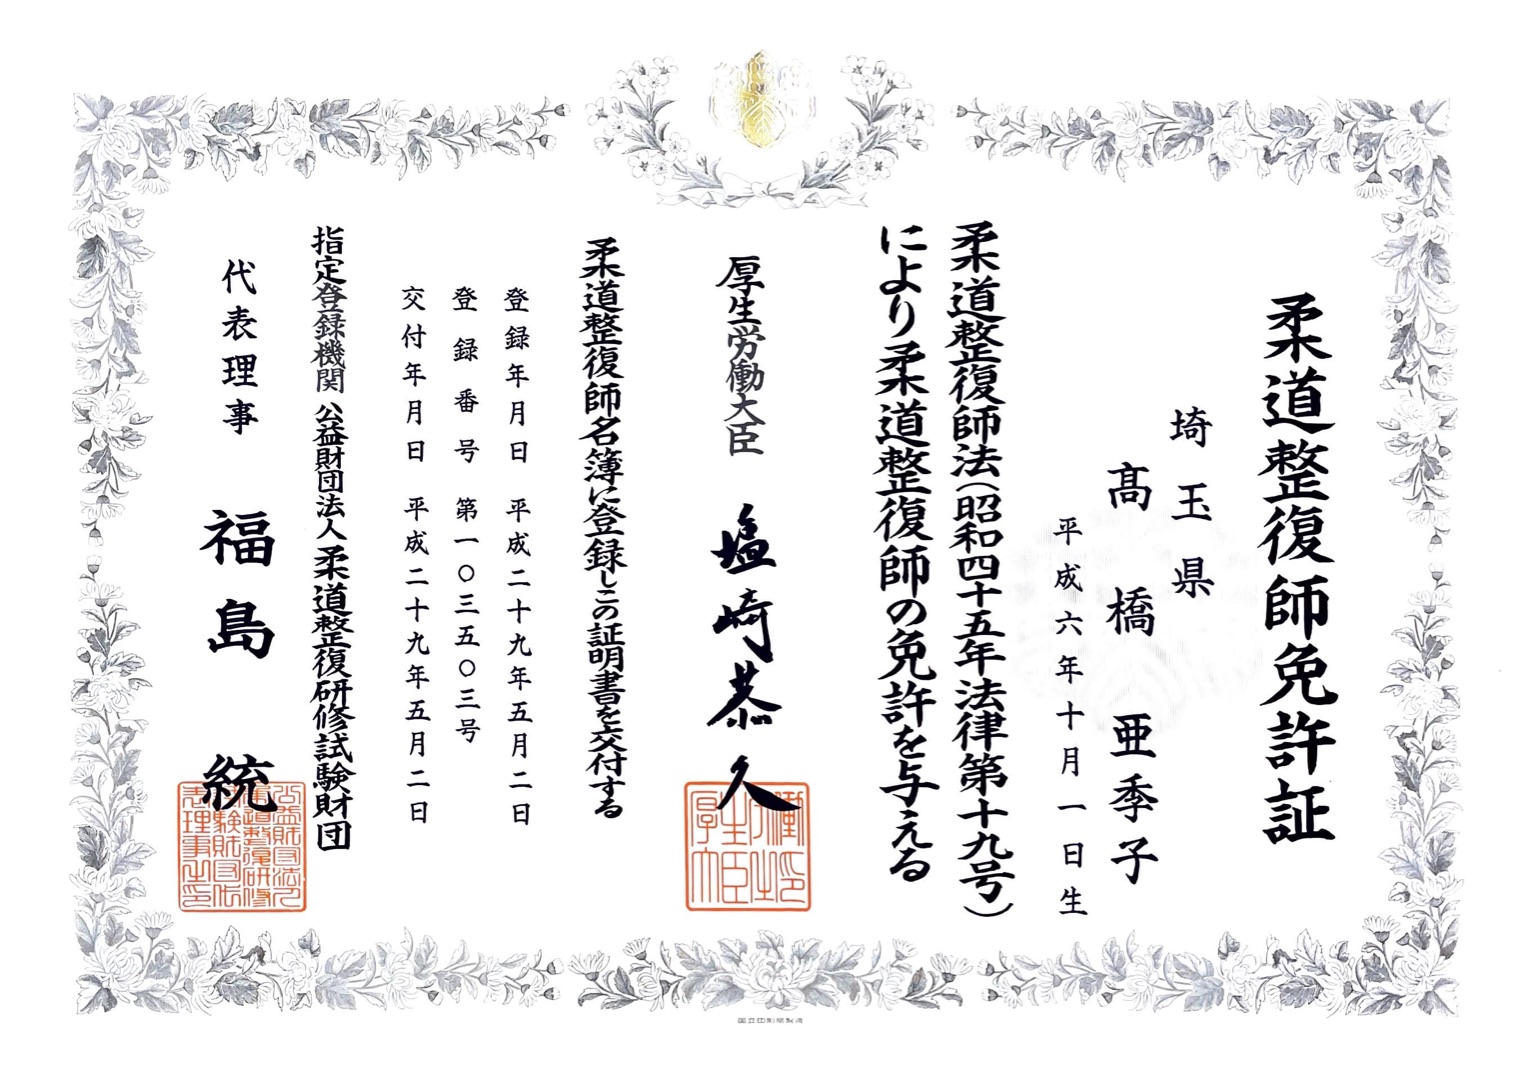 柔道整復師免許証
埼玉県
髙橋亜季子
平成六年十月一日生
柔道整復師法(昭和四十五年法律第十九号)
により柔道整復師の免許を与える
厚生労働大臣 塩崎恭久
柔道整復師名簿に登録しこの証明書を交付する
登録年月日 平成二十九年五月二日
登録番号 第一〇三五〇三号
交付年月日 平成二十九年五月二日
指定登録機関 公益財団法人 柔道整復研修試験財団
代表理事 福島統
国立印刷局製造